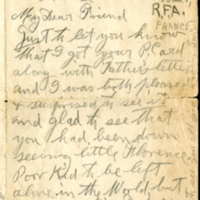 R.F.A.
FRANCE
My Dear Friend
Just to let you know
that I got your P. Card
along with Fathers letter
and I was both pleased
& surprised to see it
and glad to see that
you had been down
seeing little Florence
Poor Kid to be left
alone in the World but